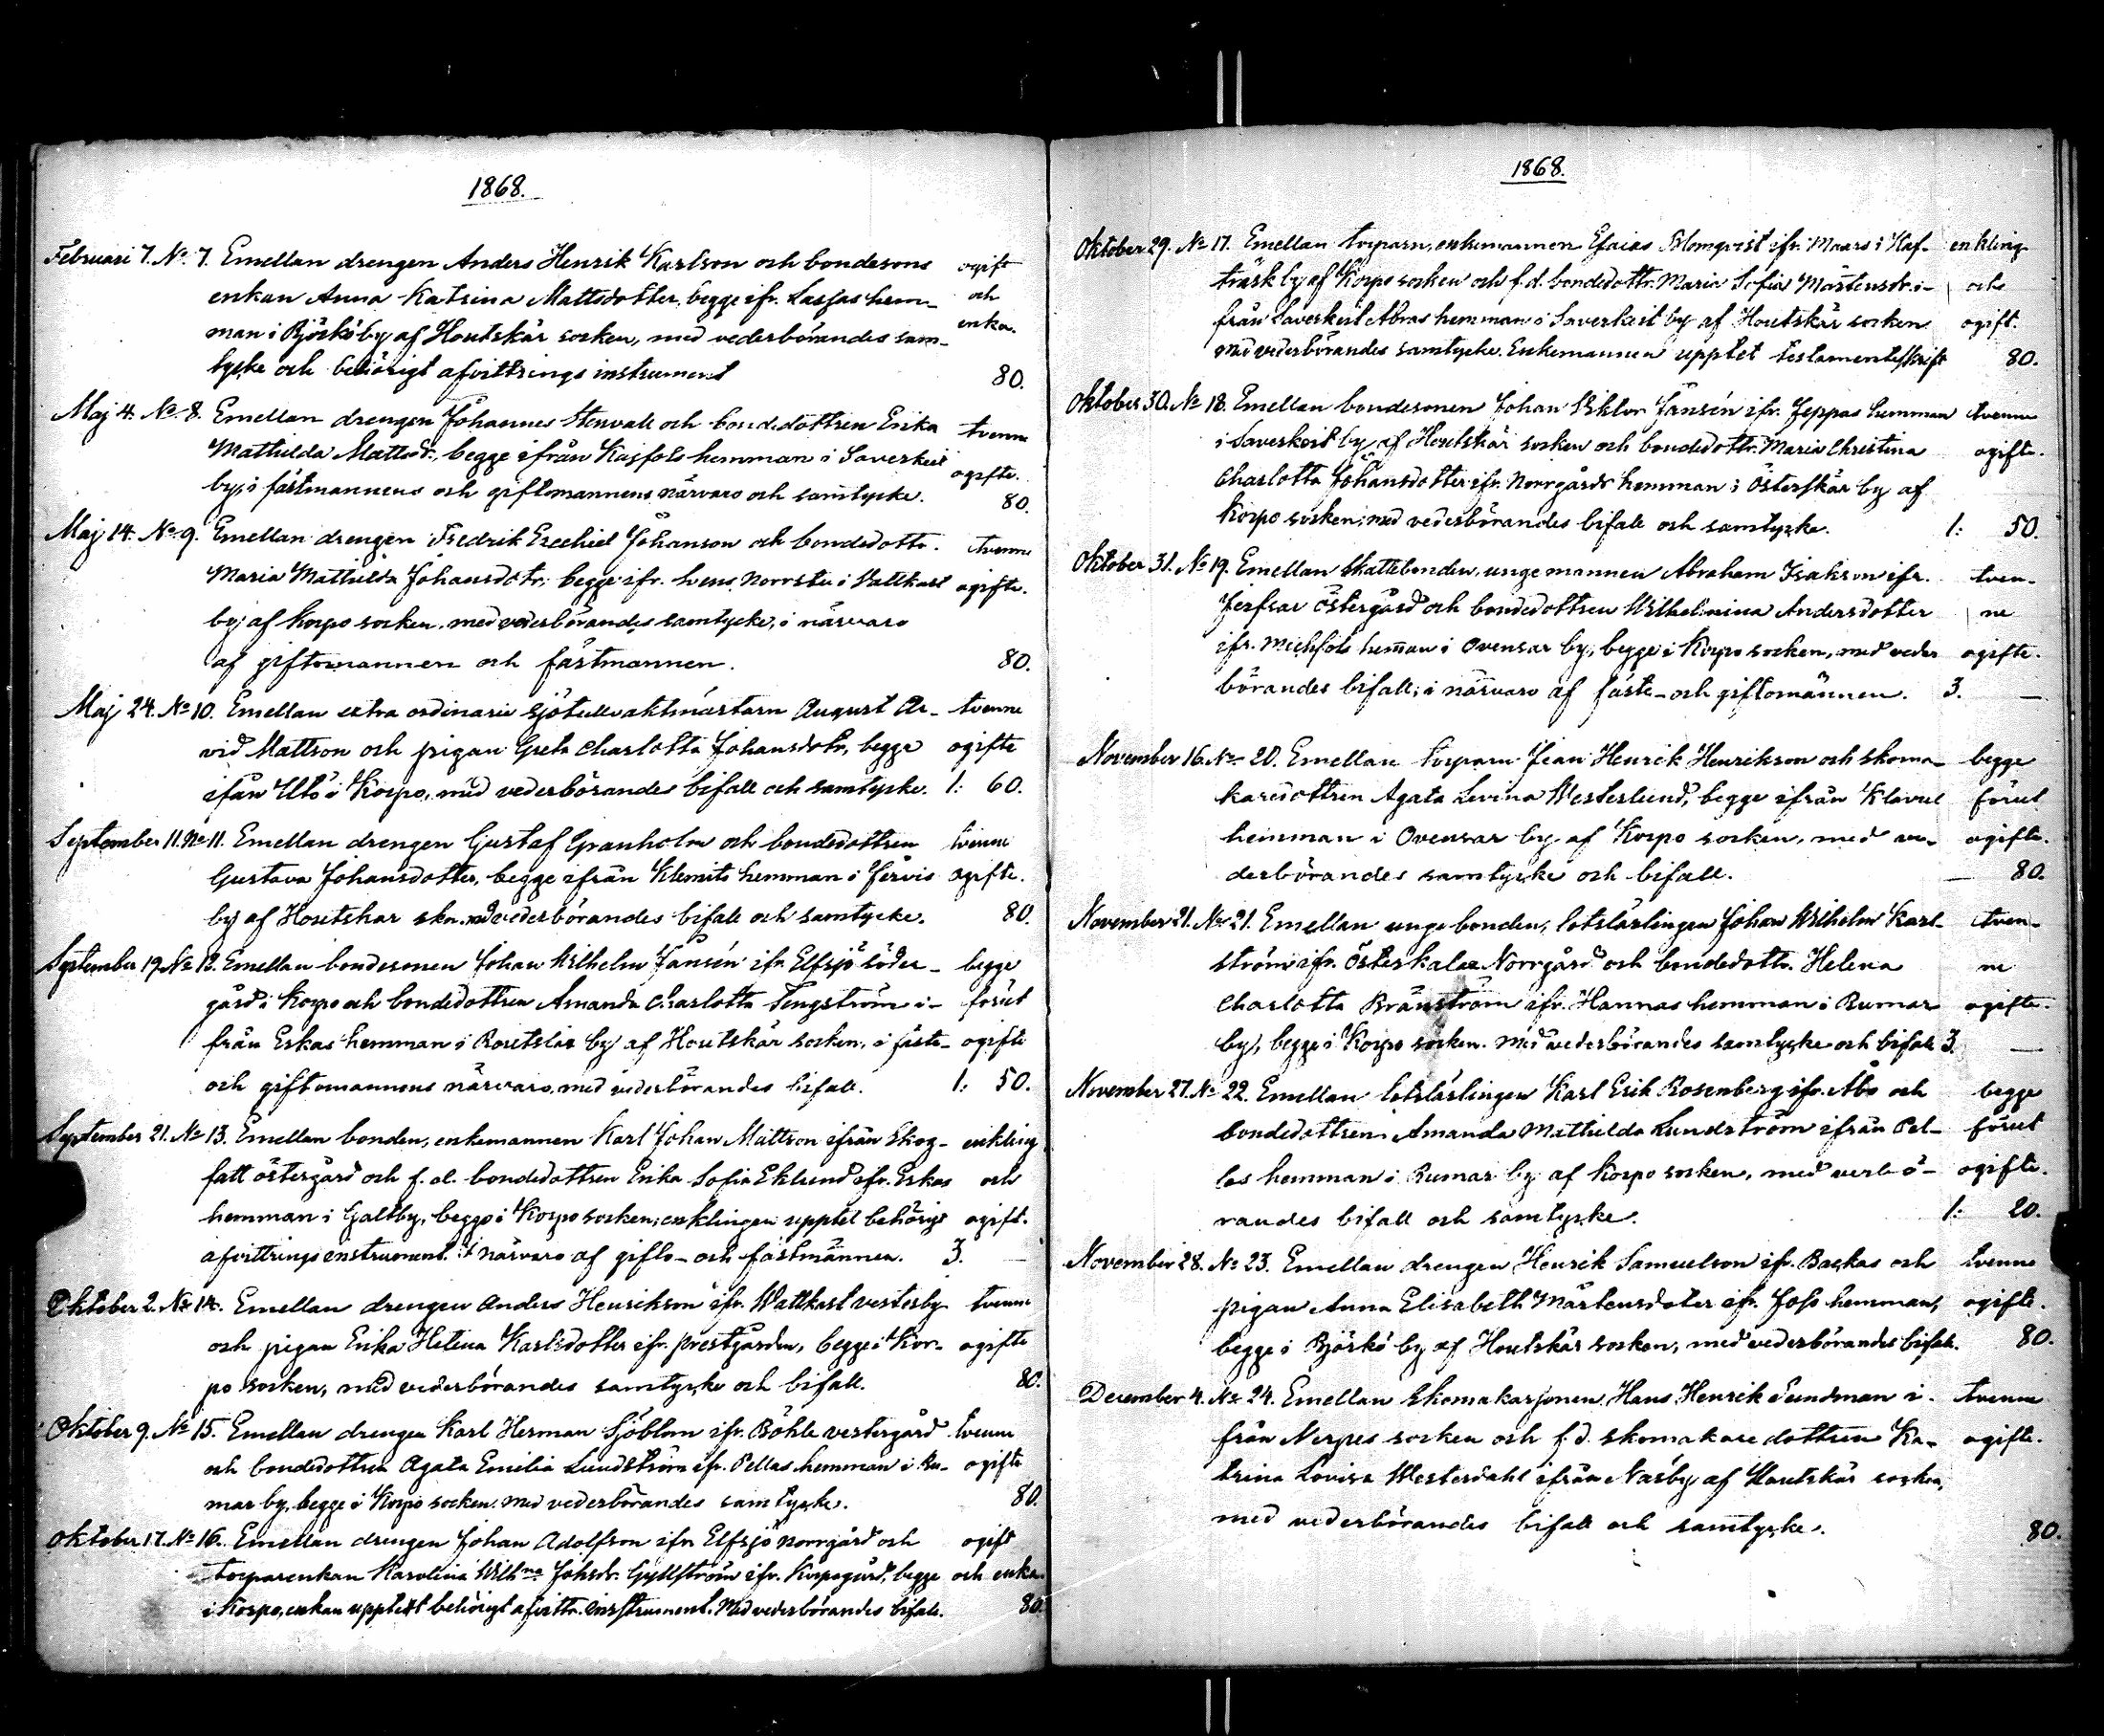 1868.
Februari 7. No. 7. Emellan drengen Anders Henrik Karlson och bondesons ogift
enkan Anna Katrina Mattsdotter, begge ifr. Lasfas hem- och
man i Björkö by af Houtskär socken, med vederbörandes sam- enka.
tycke och behörigt afvittrings instrument 80.
Maj 4. No. 8. Emellan drengen Johannes Stenvall och bondedottren Erika tvenne
Mathilda Mattsdr., begge ifrån Kasfols hemman i Saverkeit ogifte.
by, i fästmannens och giftomannens närvaro och samtycke. 80.
Maj 14. No. 9. Emellan drengen Fredrik Esechiel Johanson och bondedottr. tvenne
Maria Mathilda Johansdotr, begge ifr. hens Norrstu i Vattkast ogifte.
by af Korpo socken, med vederbörandes samtycke, i närvaro
af giftomannen och fästmannen. 80.
Maj 24. No 10. Emellan extra ordinarie sjötullvaktmästarn August Ar- tvenne
vid Mattson och pigan Greta Charlotta Johansdotr, begge ogifte
ifån Utö i Korpo, med vederbörandes bifall och samtycke. 1: 60.
September 11. No 11. Emellan drengen Gustaf Granholm och bondedottren tvenne
Gustava Johansdotter, begge ifrån Klemits hemman i Jervis ogifte.
by af Houtskar skn. md vederbörandes bifall och samtycke. 80.
September 19. No 12. Emellan bondesonen Johan Wilhelm Jansén ifr. Elfsjö söder- begge
gård i Korpo och bondedottren Amanda Charlotta Tengström i- förut
från Eskas hemman i Roslax by af Houtskär socken, i fäste- ogifte
och giftomannens närvaro, med vederbörandes bifall. 1: 50.
September 21. No 13. Emellan bonden, enkemannen Karl Johan Mattson ifrån Skog- enkling
fatt östergård och f. d. bondedottren Erika Sofia Eklund ifr. Eskas och
hemman i Galtby, begge i Korpo socken; enklingen upptet behörigt ogift.
afvittrings instrument. i närvaro af gifto- och fästmännen. 3. —
Oktober 2. No 14. Emellan drengen Anders Henrikson ifr. Wattkast vesterby tvenne
och pigan Erika Helena Karlsdotter ifr. prestgården, begge i Kor- ogifte
po socken, med vederbörandes samtycke och bifall. 80.
Oktober 9. No 15. Emellan drengen Karl Herman Sjöblom ifr. Böhle vestergård tvenne
och bondedottren Agata Emilia Lundström ifr. Pellas hemman i Ru- ogifte
mar by, begge i Korpo socken. med vederbörandes samtycke. 80.
Oktober 17. No 16. Emellan drengen Johan Adolfson ifr. Elfsjö norrgård och ogift
torparenkan Karolina Wilhna Johsdr. Gyllström ifr. Korpogård, begge och enka.
i Korpo, enkan upptett behörigt afvittr. instrument. Med vederbörandes bifall. 80.
1868.
Oktober 29. No 17. Emellan torparn, enkemannen Esaias Blomqvist ifr. Maars i Kaf- enkling
träsk by af Korpo socken och f. d. bondedottr. Maria Sofia Mårtensdr. i- och
från Saverkeit Abras hemman i Saverkeit by af Houtskär socken ogift.
med vederbörandes samtycke. Enkemannen upptet testamentsskrift 80.
Oktober 30. No 18. Emellan bondesonen Johan Viktor Jansén ifr. Jeppas hemman tvenne
i Saverkeit by af Houtskär socken och bondedottr. Maria Christina ogifte.
Charlotta Johansdotter ifr. Norrgårds hemman i Österskär by af
Korpo socken; med vederbörandes bifall och samtycke. 1: 50.
Oktober 31. No 19. Emellan Skattebonden, unge mannen Abraham Isakson ifr. tven-
Jerfsar östergård och bondedottren Wilhelmina Andersdotter ne
ifr. Michfols heman i Ovensar by, begge i Korpo socken, med veder ogifte.
börandes bifall; i närvaro af fäste- och giftomännen. 3. —
November 16. No 20. Emellan torparn Jean Henrik Henrikson och skoma- begge
karedottren Agata Levina Westerlund, begge ifrån Klavus förut
hemman i Ovensar by af Korpo socken, med ve- ogifte.
derbörandes samtycke och bifall. 80.
November 21. No 21. Emellan unge bonden, lotslärlingen Johan Wilhelm Karl- tven-
ström ifr. Österskalax Norrgård och bondedottr. Helena ne
Charlotta Bränström ifr. Hannas hemman i Rumar ogifte.
by, begge i Korpo socken. med vederbörandes samtycke och bifall 3. —
November 27. No 22. Emellan lotslärlingen Karl Erik Rosenberg ifr. Åbo och begge
bondedottren Amanda Mathilda Lundström ifrån Pel- förut
las hemman i Rumar by af Korpo socken, med verbö- ogifte.
randes bifall och samtycke. 1: 20.
November 28. No 23. Emellan drengen Henrik Samuelson ifr. Backas och tvenne
pigan Anna Elisabeth Mårtensdoter ifr. Joss hemman, ogifte.
begge i Björkö by af Houtskär socken, med vederbörandes bifall. 80.
December 4. No 24. Emellan Skomakarsonen Hans Henrik Sundman i- tvenne
från Nerpes socken och f. d. skomakaredottren Ka- ogifte.
trina Lovisa Westerdahl ifrån Näsby af Houtskär socken,
med vederbörandes bifall och samtycke. 80.